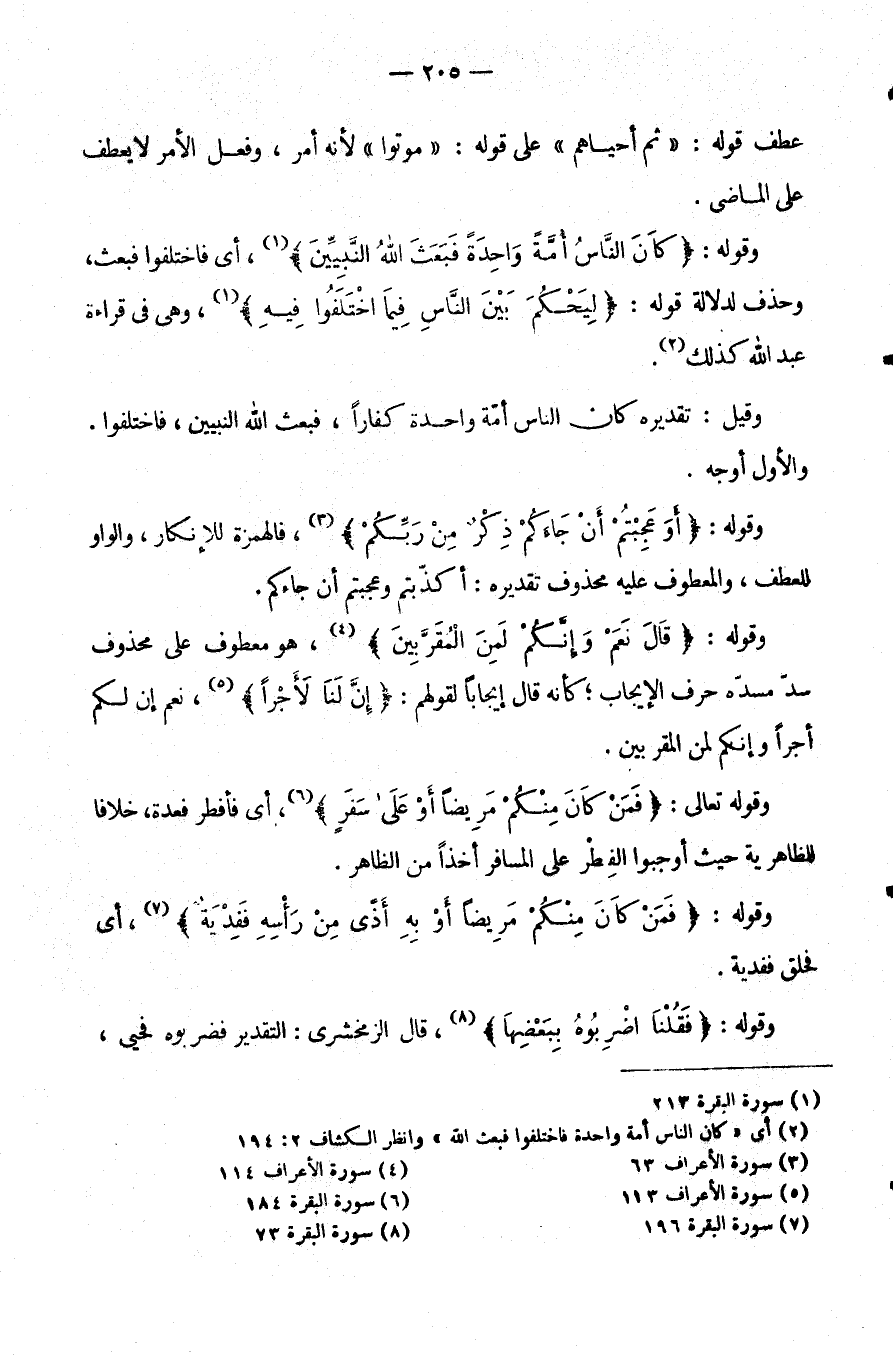 — ٢٠٥ —
عطف قوله : « ثم أحيــاهم » على قوله : « موتوا » لأنه أمر ، وفعــل الأمر لايعطف
على المــاضى .
وقوله : ﴿ كَانَ النَّاسُ أُمَّةً وَاحِدَةً فَبَعَثَ اللهُ النَّبِيِّينَ ﴾(١) ، أى فاختلفوا فبعث،
وحذف لدلالة قوله : ﴿ لِيَحْـكُمَ بَيْنَ النَّاسِ فِيمَا اخْتَلَفُوا فِيــهِ ﴾(١) ، وهى فى قراءة
عبد الله كذلك(٢).
وقيل : تقديره كان الناس أمّة واحــدة كفاراً ، فبعث الله النبيين ، فاختلفوا .
والأول أوجه .
وقوله : ﴿ أَوَ عَجِبْتُمْ أَنْ جَاءَكُمْ ذِكْرٌ مِنْ رَبِّـكُمْ ﴾ (٣) ، فالهمزة للإنكار ، والواو
للعطف ، والمعطوف عليه محذوف تقديره : أكذّبتم وعجبتم أن جاءكم.
وقوله : ﴿ قَالَ نَعَمْ وَإِنَّـكُمْ لَمِنَ الْمُقَرَّبِينَ ﴾ (٤) ، هو معطوف على محذوف
سدّ مسدّه حرف الإيجاب ؛ كأنه قال إيجاباً لقولهم : ﴿ إِنَّ لَنَا لَأَجْراً ﴾ (٥) ، نعم إن لـكم
أجراً وإنكم لمن المقربين .
وقوله تعالى : ﴿ فَمَنْ كَانَ مِنْـكُمْ مَرِيضاً أَوْ عَلَى سَفَرٍ ﴾(٦)، أى فأفطر فعدة، خلافا
للظاهرية حيث أوجبوا الفِطْر على المسافر أخذاً من الظاهر .
وقوله : ﴿ فَمَنْ كَانَ مِنْـكُمْ مَرِيضاً أَوْ بِهِ أَذًى مِنْ رَأْسِهِ فَفِدْيَةٌ ﴾ (٧) ، أى
فحلق ففدية .
وقوله : ﴿ فَقُلْنَا اضْرِبُوهُ بِبَعْضِهَا ﴾ (٨) ، قال الزمخشرى : التقدير فضربوه فحيي ،
(١) سورة البقرة ٢١٣
(٢) أى « كان الناس أمة واحدة فاختلفوا فبعث الله » وانظر الـكشاف ٢ : ١٩٤
(٣) سورة الأعراف ٦٣ (٤) سورة الأعراف ١١٤
(٥) سورة الأعراف ١١٣ (٦) سورة البقرة ١٨٤
(٧) سورة البقرة ١٩٦ (٨) سورة البقرة ٧٣